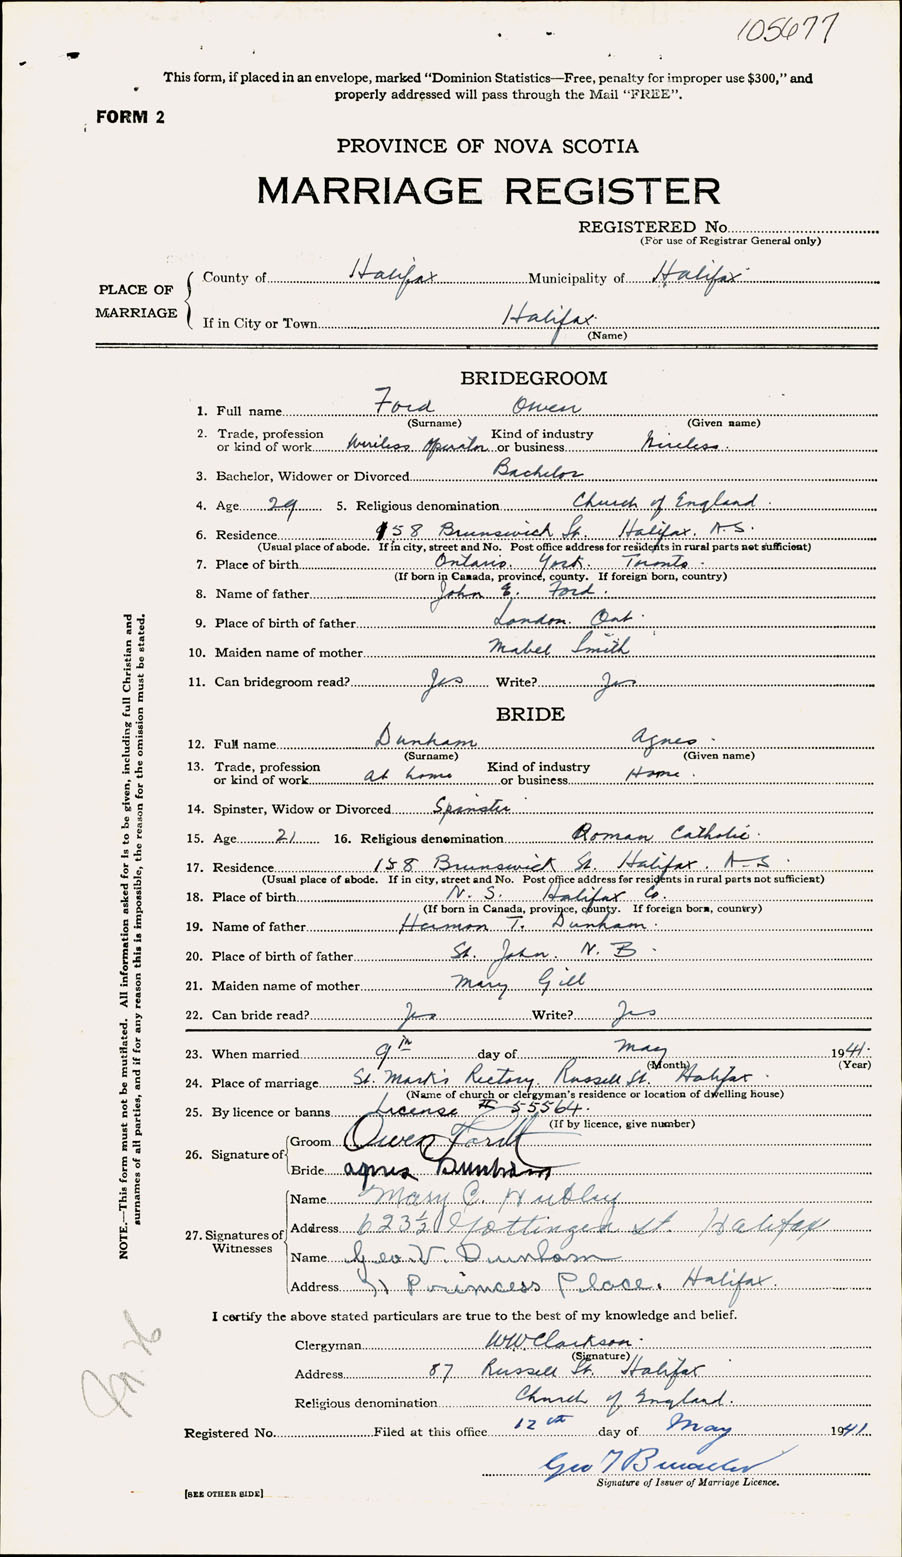 105677
This form, if placed in an envelope, marked “Dominion Statistics—Free, penalty for improper use $300,” and
properly addressed will pass through the Mail “FREE”.
FORM 2
PROVINCE OF NOVA SCOTIA
MARRIAGE REGISTER
REGISTERED No.
(For use of Registrar General only)
PLACE OF MARRIAGE
County of Halifax Municipality of Halifax
If in City or Town Halifax
(Name)
BRIDEGROOM
1. Full name Ford Owen
(Surname) (Given name)
2. Trade, profession or kind of work Wireless Operator Kind of industry or business Wireless.
3. Bachelor, Widower or Divorced Bachelor
4. Age 29 5. Religious denomination Church of England.
6. Residence 158 Brunswick St. Halifax. N.S.
(Usual place of abode. If in city, street and No. Post office address for residents in rural parts not sufficient)
7. Place of birth Ontario. York. Toronto.
(If born in Canada, province, county. If foreign born, country)
8. Name of father John E. Ford.
9. Place of birth of father London. Ont.
10. Maiden name of mother Mabel Smith
11. Can bridegroom read? Yes Write? Yes
BRIDE
12. Full name Dunham Agnes.
(Surname) (Given name)
13. Trade, profession or kind of work At home Kind of industry or business Home.
14. Spinster, Widow or Divorced Spinster
15. Age 21 16. Religious denomination Roman Catholic.
17. Residence 158 Brunswick St. Halifax. N.S.
(Usual place of abode. If in city, street and No. Post office address for residents in rural parts not sufficient)
18. Place of birth N.S. Halifax Co.
(If born in Canada, province, county. If foreign born, country)
19. Name of father Hermon T. Dunham.
20. Place of birth of father St. John. N.B.
21. Maiden name of mother Mary Gill
22. Can bride read? Yes Write? Yes
23. When married 9th day of May 1941.
(Month) (Year)
24. Place of marriage St. Mark's Rectory. Russell St. Halifax.
(Name of church or clergyman's residence or location of dwelling house)
25. By licence or banns License # 55564.
(If by licence, give number)
26. Signature of
Groom Owen Ford
Bride Agnes Dunham
27. Signatures of Witnesses
Name Mary C. Hubley
Address 623½ Gottingen St. Halifax
Name Geo V. Dunham
Address 71 Princess Place. Halifax.
I certify the above stated particulars are true to the best of my knowledge and belief.
Clergyman WW Clarkson.
(Signature)
Address 87 Russell St. Halifax
Religious denomination Church of England.
Registered No. Filed at this office 12th day of May 1941
Geo T
Signature of Issuer of Marriage Licence.
[SEE OTHER SIDE]
NOTE.—This form must not be mutilated. All information asked for is to be given, including full Christian and
surnames of all parties, and if for any reason this is impossible, the reason for the omission must be stated.